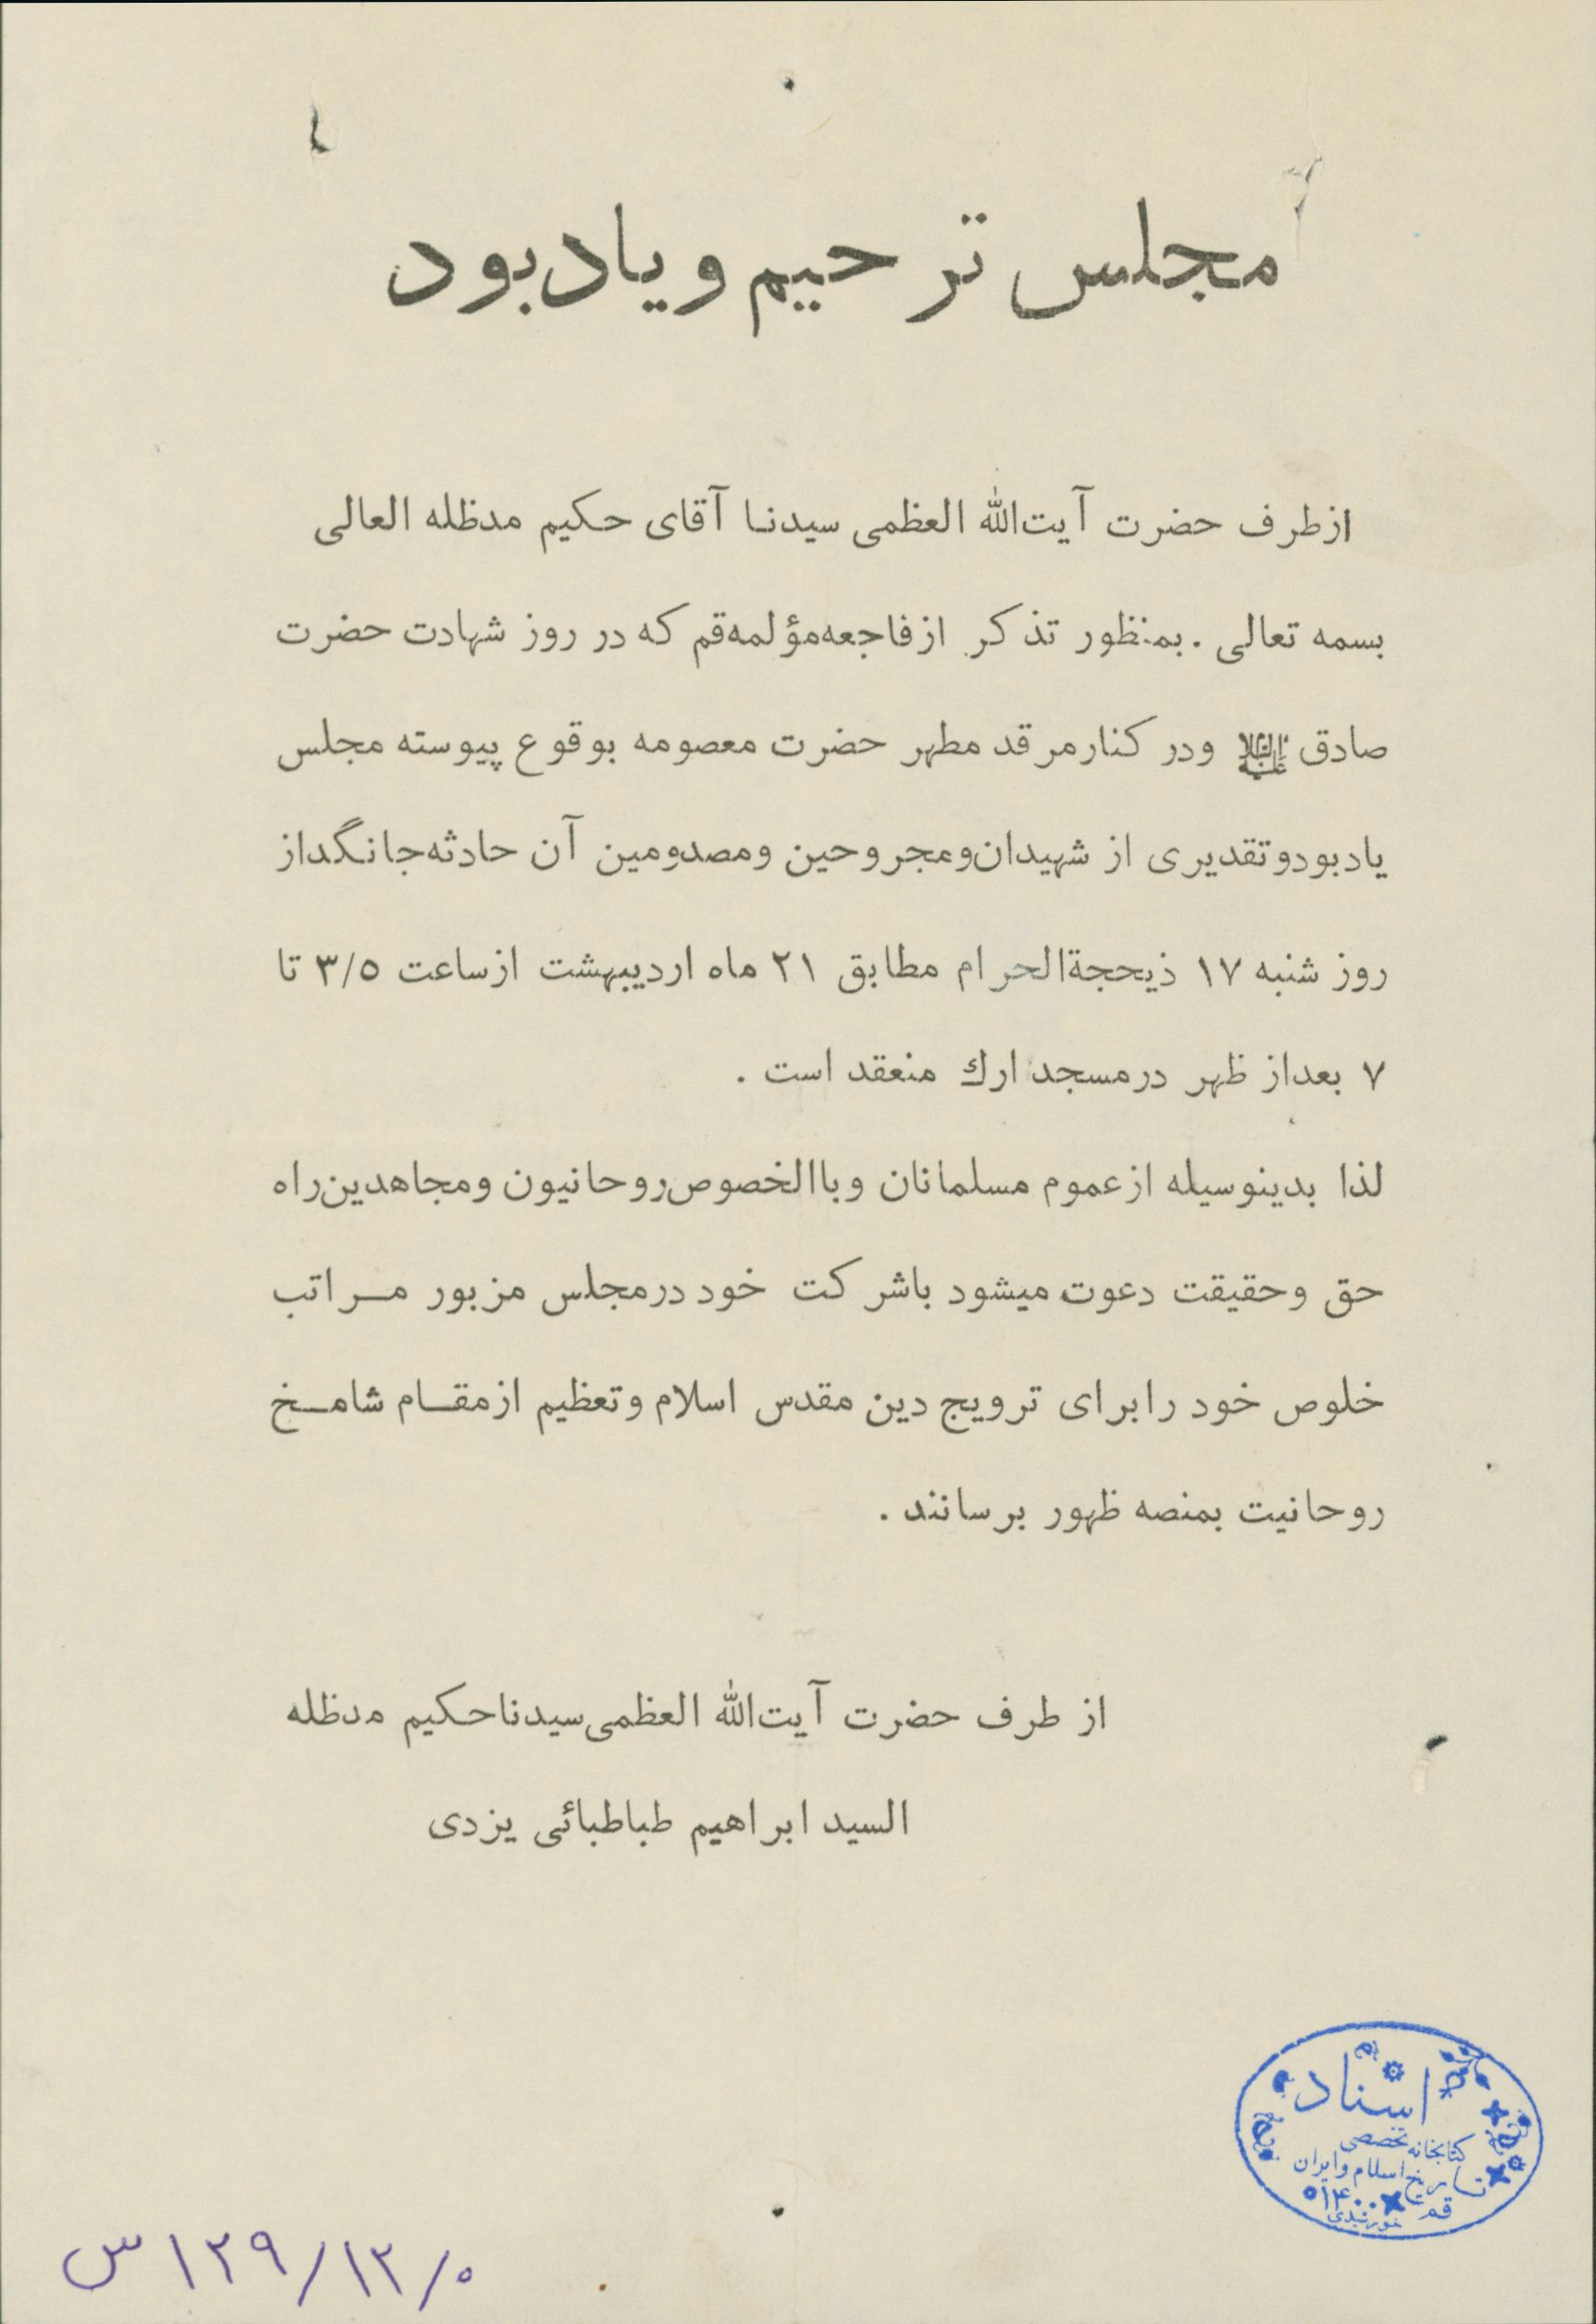 مجلس ترحیم و یادبود
از طرف حضرت آیت‌الله العظمی سیدنا آقای حکیم مدظله العالی
بسمه تعالی . بمنظور تذکر از فاجعه مؤلمه قم که در روز شهادت حضرت
صادق علیه‌السلام و در کنار مرقد مطهر حضرت معصومه بوقوع پیوسته مجلس
یادبود و تقدیری از شهیدان و مجروحین و مصدومین آن حادثه جانگداز
روز شنبه ۱۷ ذیحجةالحرام مطابق ۲۱ ماه اردیبهشت از ساعت ۳/۵ تا
۷ بعد از ظهر در مسجد ارك منعقد است .
لذا بدینوسیله از عموم مسلمانان و باالخصوص روحانیون و مجاهدین راه
حق و حقیقت دعوت میشود با شرکت خود در مجلس مزبور مراتب
خلوص خود را برای ترویج دین مقدس اسلام و تعظیم از مقام شامخ
روحانیت بمنصه ظهور برسانند .
از طرف حضرت آیت‌الله العظمی سیدنا حکیم مدظله
السید ابراهیم طباطبائی یزدی
اسناد
کتابخانه تخصصی
تاریخ اسلام و ایران
قم
۱۲۹/۱۲/۰ س